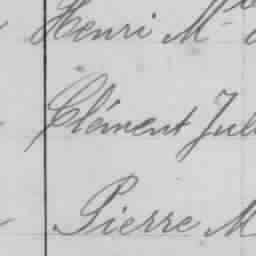 Henri M
Clément Jul
Pierre M